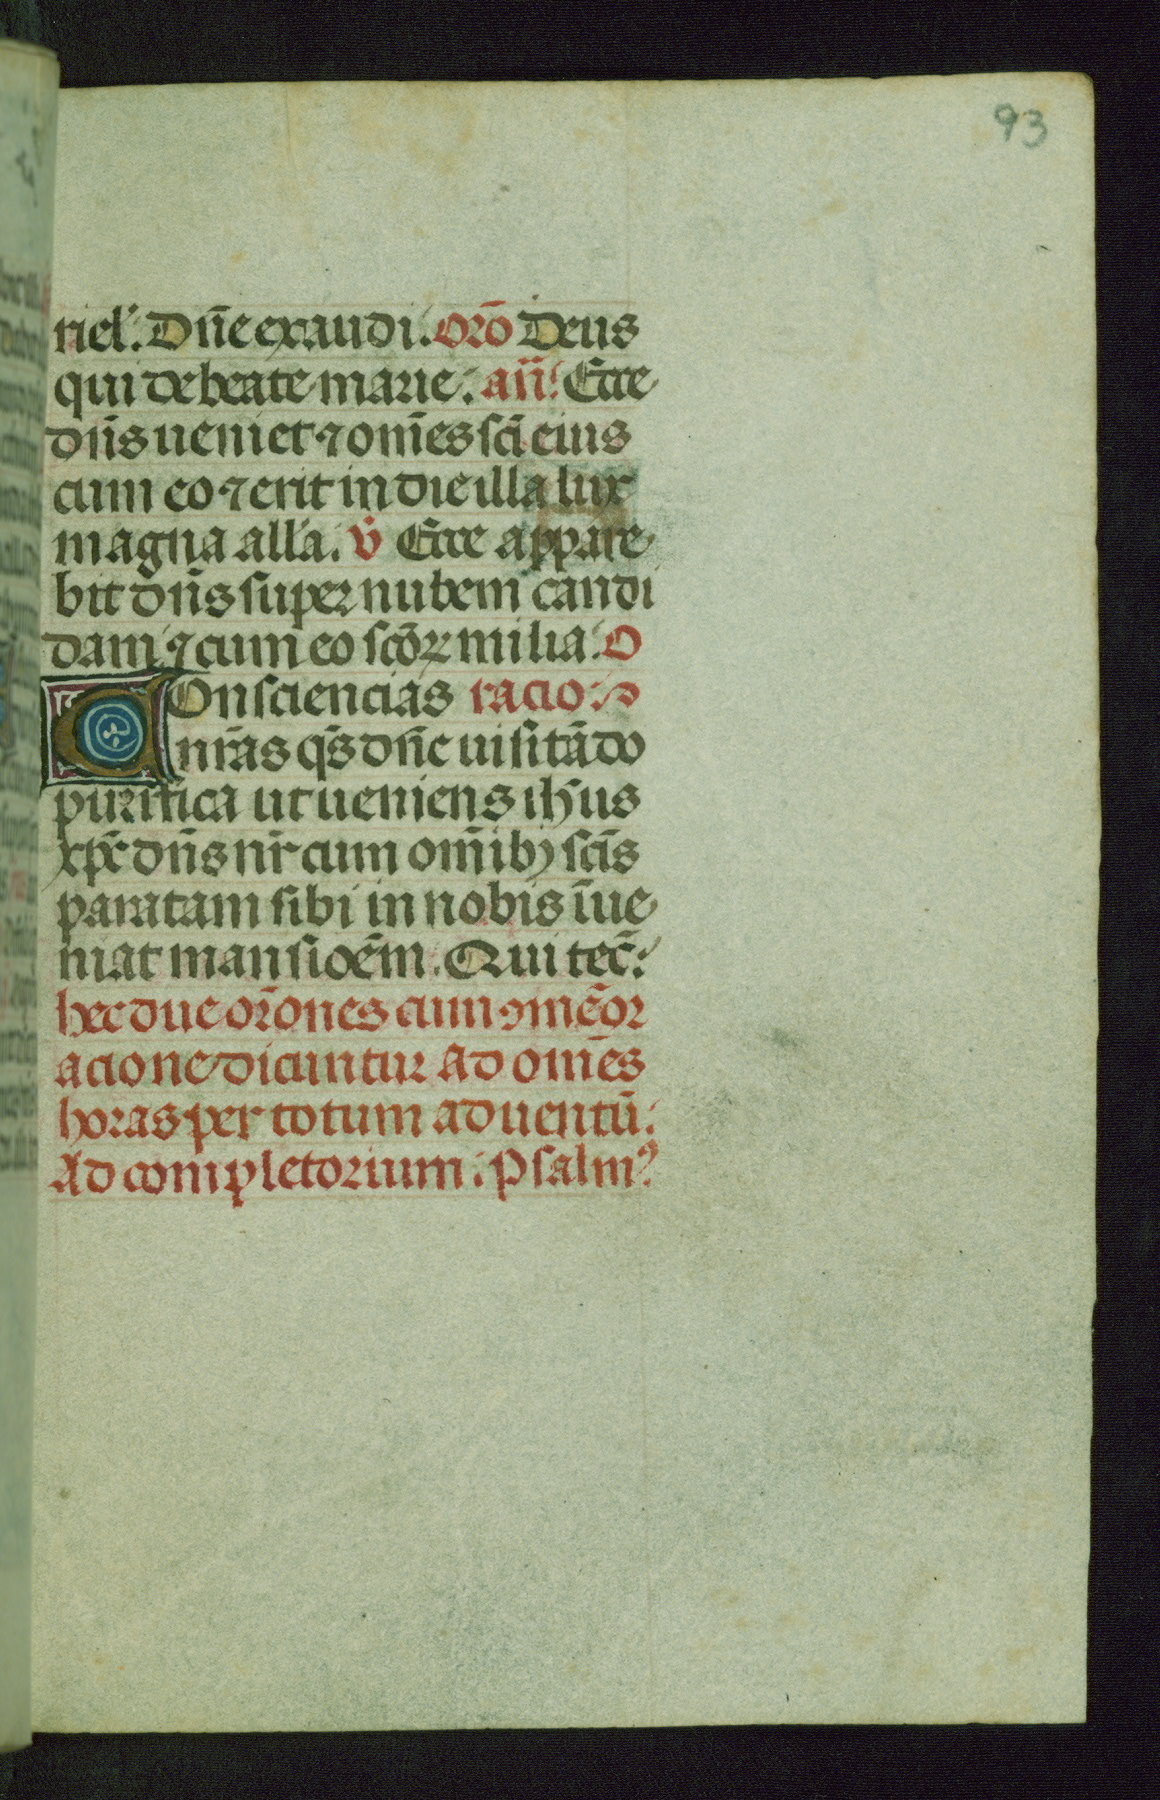 93
riel. Dñe exaudi. orõ Deus
qui de beate marie. añ. Ecce
dñs ueniet ⁊ om̃es sc̃i eius
cum eo ⁊ erit in die illa lux
magna all'a. v̊ Ecce appare
bit dñs super nubem candi
dam ⁊ cum eo sc̃oꝝ milia. O
Consciencias racio.
nr̃as qs̃ dñe uisitãdo
purifica ut ueniens ihs̃us
xpc̃ dñs nr̃ cum om̃ibꝫ sc̃is
paratam sibi in nobis ĩue
niat mansioẽm. Qui tec̃.
hec due or̃ones cum ꝯmẽor
acione dicuntur ad om̃es
horas per totum aduentũ.
Ad completorium. Psalmꝰ